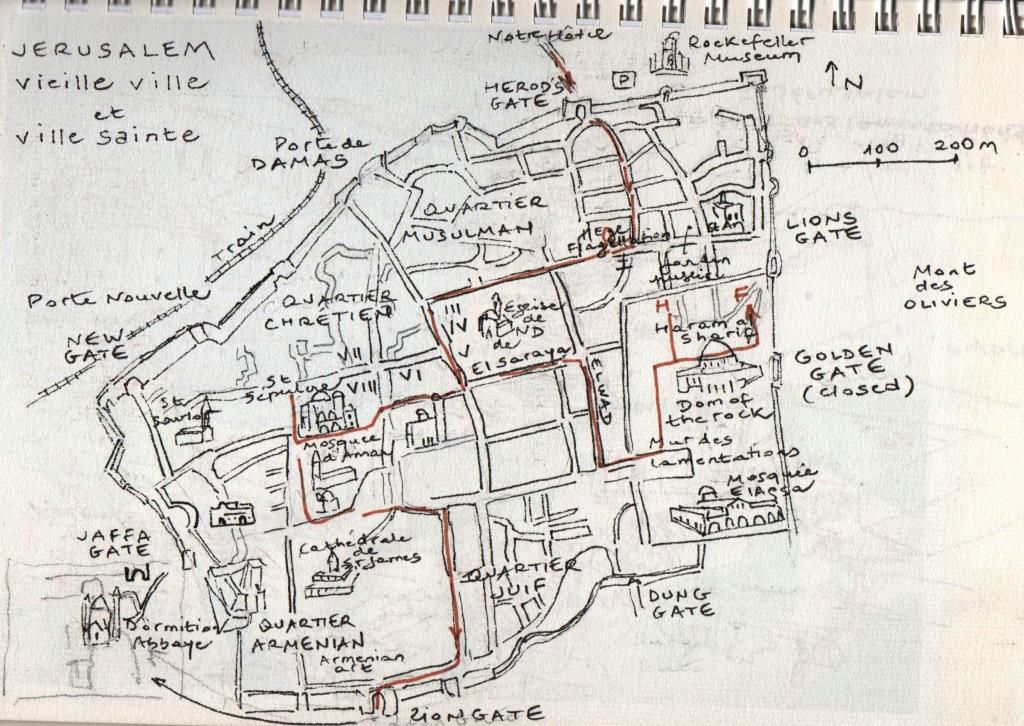 JERUSALEM
vieille ville
et
ville sainte
Notre Hôtel
Rockefeller
Museum
P
N
HEROD'S
GATE
Porte de
DAMAS
0 100 200m
Train
QUARTIER
MUSULMAN
Flagellation
St An
I
II
LIONS
GATE
Mont
des
OLIVIERS
Porte Nouvelle
NEW
GATE
QUARTIER
CHRETIEN
III
IV
V
Eglise
de
ND
de
El Saraya
H
E
Haram al
Sharif
GOLDEN
GATE
(closed)
VII
VIII
VI
St
Sepulcre
EL WAD
Dom of
the rock
Mosquée
d'Aman
Mur des
lamentations
Mosquée
El Aqsa
JAFFA
GATE
Cathédrale
de
St James
QUARTIER
JUIF
DUNG
GATE
Dormition
Abbaye
QUARTIER
ARMENIAN
Armenian
art
ZION GATE